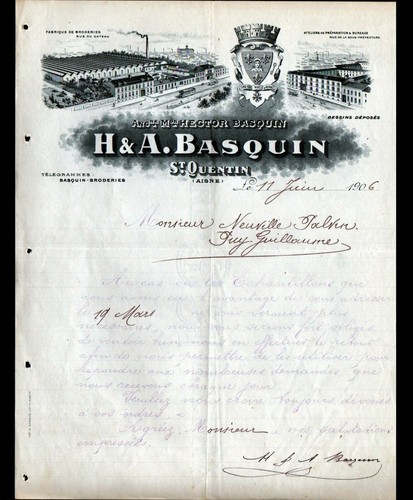 FABRIQUE DE BRODERIES
RUE DU GATEAU
ATELIERS DE PRÉPARATION & BUREAUX
RUE DE LA SOUS-PRÉFECTURE
DESSINS DÉPOSÉS
ANC.NE M.ON HECTOR BASQUIN
H & A. BASQUIN
ST QUENTIN
(AISNE)
TÉLÉGRAMMES:
BASQUIN-BRODERIES
Le 11 Juin 1906
Monsieur Neuville
Puy Guillaume
Au cas où les Echantillons que
nous avons eu l'avantage de vous adresser
le 19 Mars ne vous seraient plus
nécessaires, nous vous serions fort obligés
de vouloir bien nous en effectuer le retour
afin de nous permettre de les utiliser pour
satisfaire aux nombreuses demandes que
nous recevons chaque jour.
Veuillez nous croire toujours dévoués
à vos ordres &
Agréez, Monsieur, nos salutations
empressées.
H & A Basquin